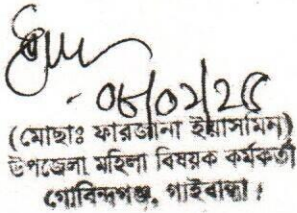 ০৮/০২/২৫
(মোছাঃ ফারজানা ইয়াসমিন)
উপজেলা মহিলা বিষয়ক কর্মকর্তা
গোবিন্দগঞ্জ, গাইবান্ধা।